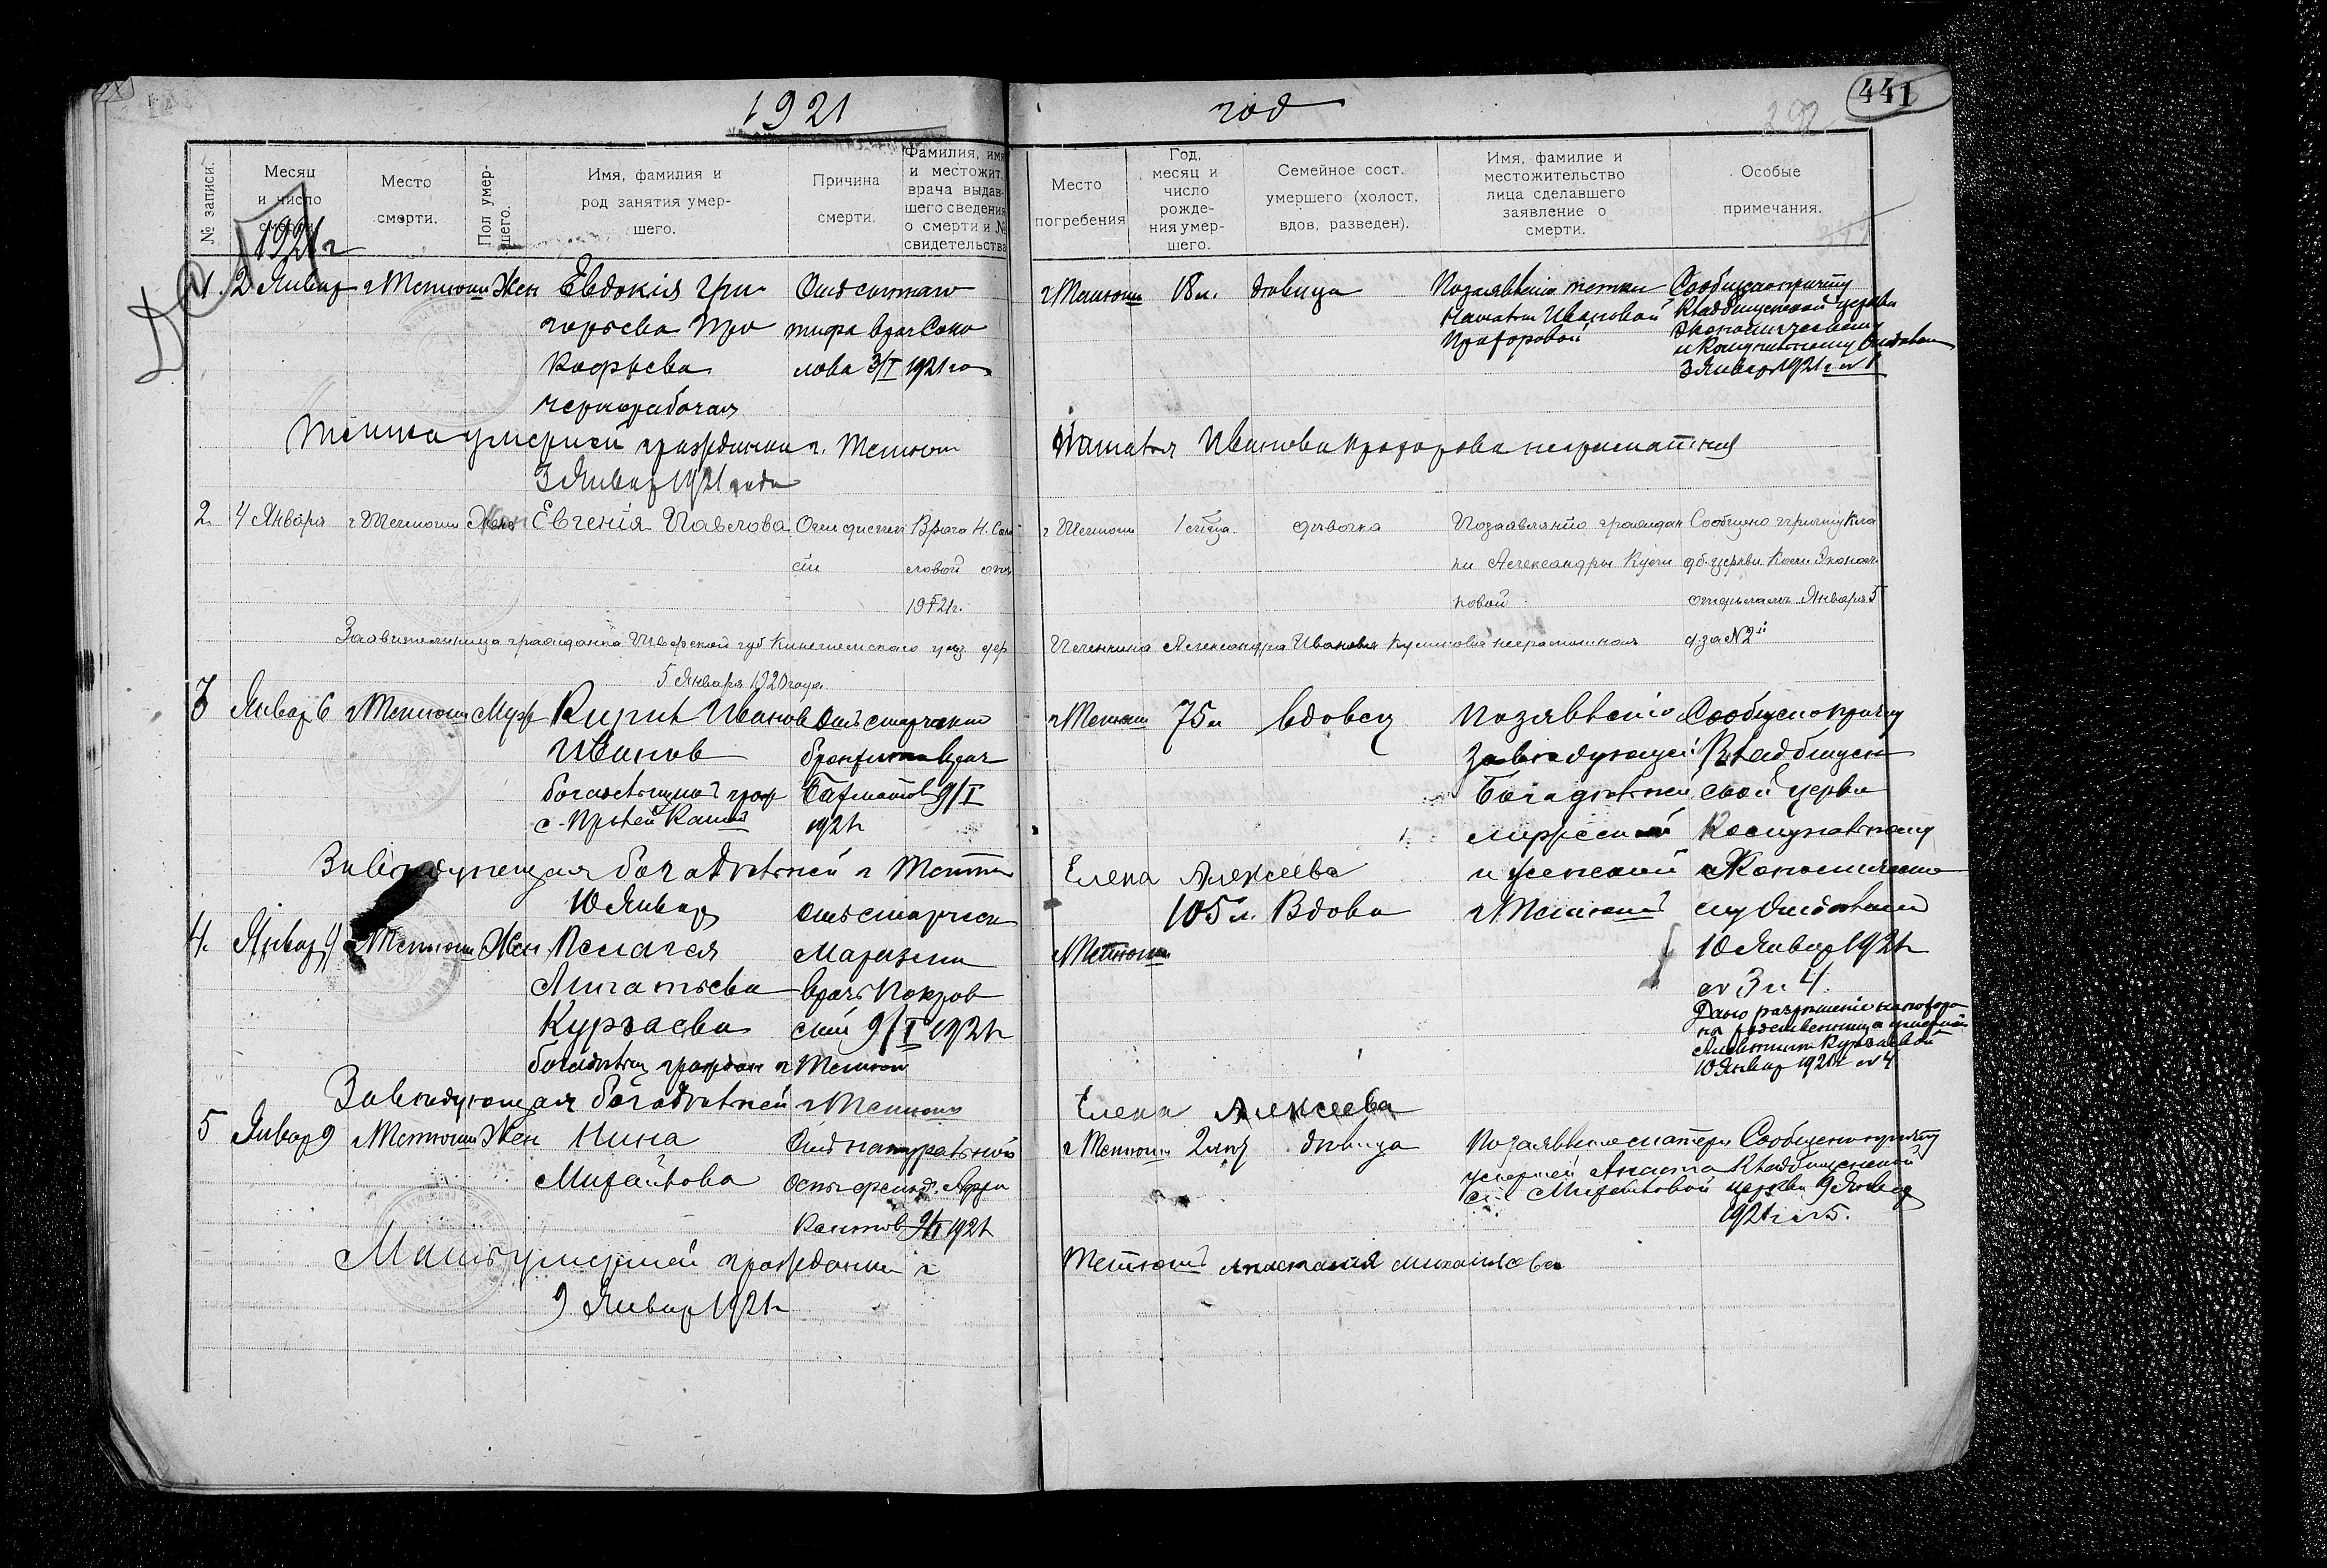 1921 год
441
292
№ записи.
Месяц и число смерти.
Место смерти.
Пол умершего.
Имя, фамилия и род занятия умершего.
Причина смерти.
Фамилия, имя и местожит. врача выдавшего сведения о смерти и № свидетельства
Место погребения
Год, месяц и число рождения умершего.
Семейное сост. умершего (холост, вдов, разведен).
Имя, фамилие и местожительство лица сделавшего заявление о смерти.
Особые примечания.
1921 г
1. 2 Январ г Тетюши Жен Евдокия Гри
горьева Про
кофьева
чернорабочая
От сыпного
тифа врач Соко
лова 3/I 1921 го
г Тетюши 18 л. девица
По заявлению тетки
Натальи Ивановой
Прохоровой
Сообщено причту
Кладбищенской церкви
Экономическому
и Комунальному Отделам
3 Январ 1921 г № 1
Тетка умершей гражданка г. Тетюши
Наталья Иванова Прохорова неграмотная
3 Январ 1921 года
2. 4 Января г Тетюши Жен Евгения Павлова
От дистен
сии
Врача Н. Соко
ловой от
1921 г.
г Тетюши 1 месяца девочка
По заявлению граждан
ки Александры Кузми
новой
Сообщено причту Кла
дб. церкви Ком. Эконом.
отделам Января 5
д. за № 2й
Заявительница гражданка Тверской губ Кинешемского уез. дер
Александра Ивановна неграмотная
5 Января 1920 года.
3 Январ 6 г Тетюши Муж Кирил Иванов
Иванов
От старческого
бронхита врач
9/I
1921 г
г Тетюши 75 л вдовец
По заявлению
заведующей
Богадельней
мужской
и женской
г Тетюши
Сообщено причту
Кладбищен
ской церкви
Комунальному
и Экономическо
му Отделам
10 Январ 1921 г
№ 3 и 4.
Заведующая богадельней г Тетюши
Елена Алексеева
10 Январ
4. Январ 9 г Тетюши Жен Пелагея
Игнатьева
Курзаева
богаделка граждан г Тетюши
От старческ
Маразма
врач Покров
ский 9/I 1921 г
г Тетюши 105 л. Вдова
Дано разрешение на похоро
ны родственнице умершей
Курзаевой
10 Январ 1921 г № 4
Заведующая богадельней г Тетюши
Елена Алексеева
5 Январ 9 г Тетюши Жен Нина
Михайлова
От натуральной
оспы
1921 г
г Тетюши 2 девица
По заявлению матери
умершей Анаста
сии Михайловой
Сообщено причту
Кладбищенской
церкви 9 Январ
1921 г № 5.
Мать умершей гражданка г
Тетюши Анастасия Михайлова
9 Январ 1921 г